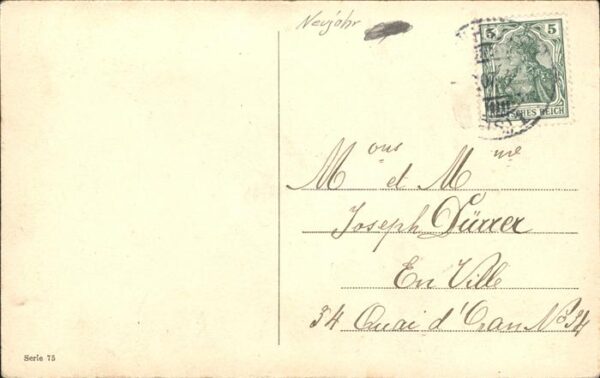 Neujahr
5 5
DEUTSCHES REICH
Mons et Mme
Joseph Dürrer
En Ville
34 Quai d'Isan No 34
Serie 75